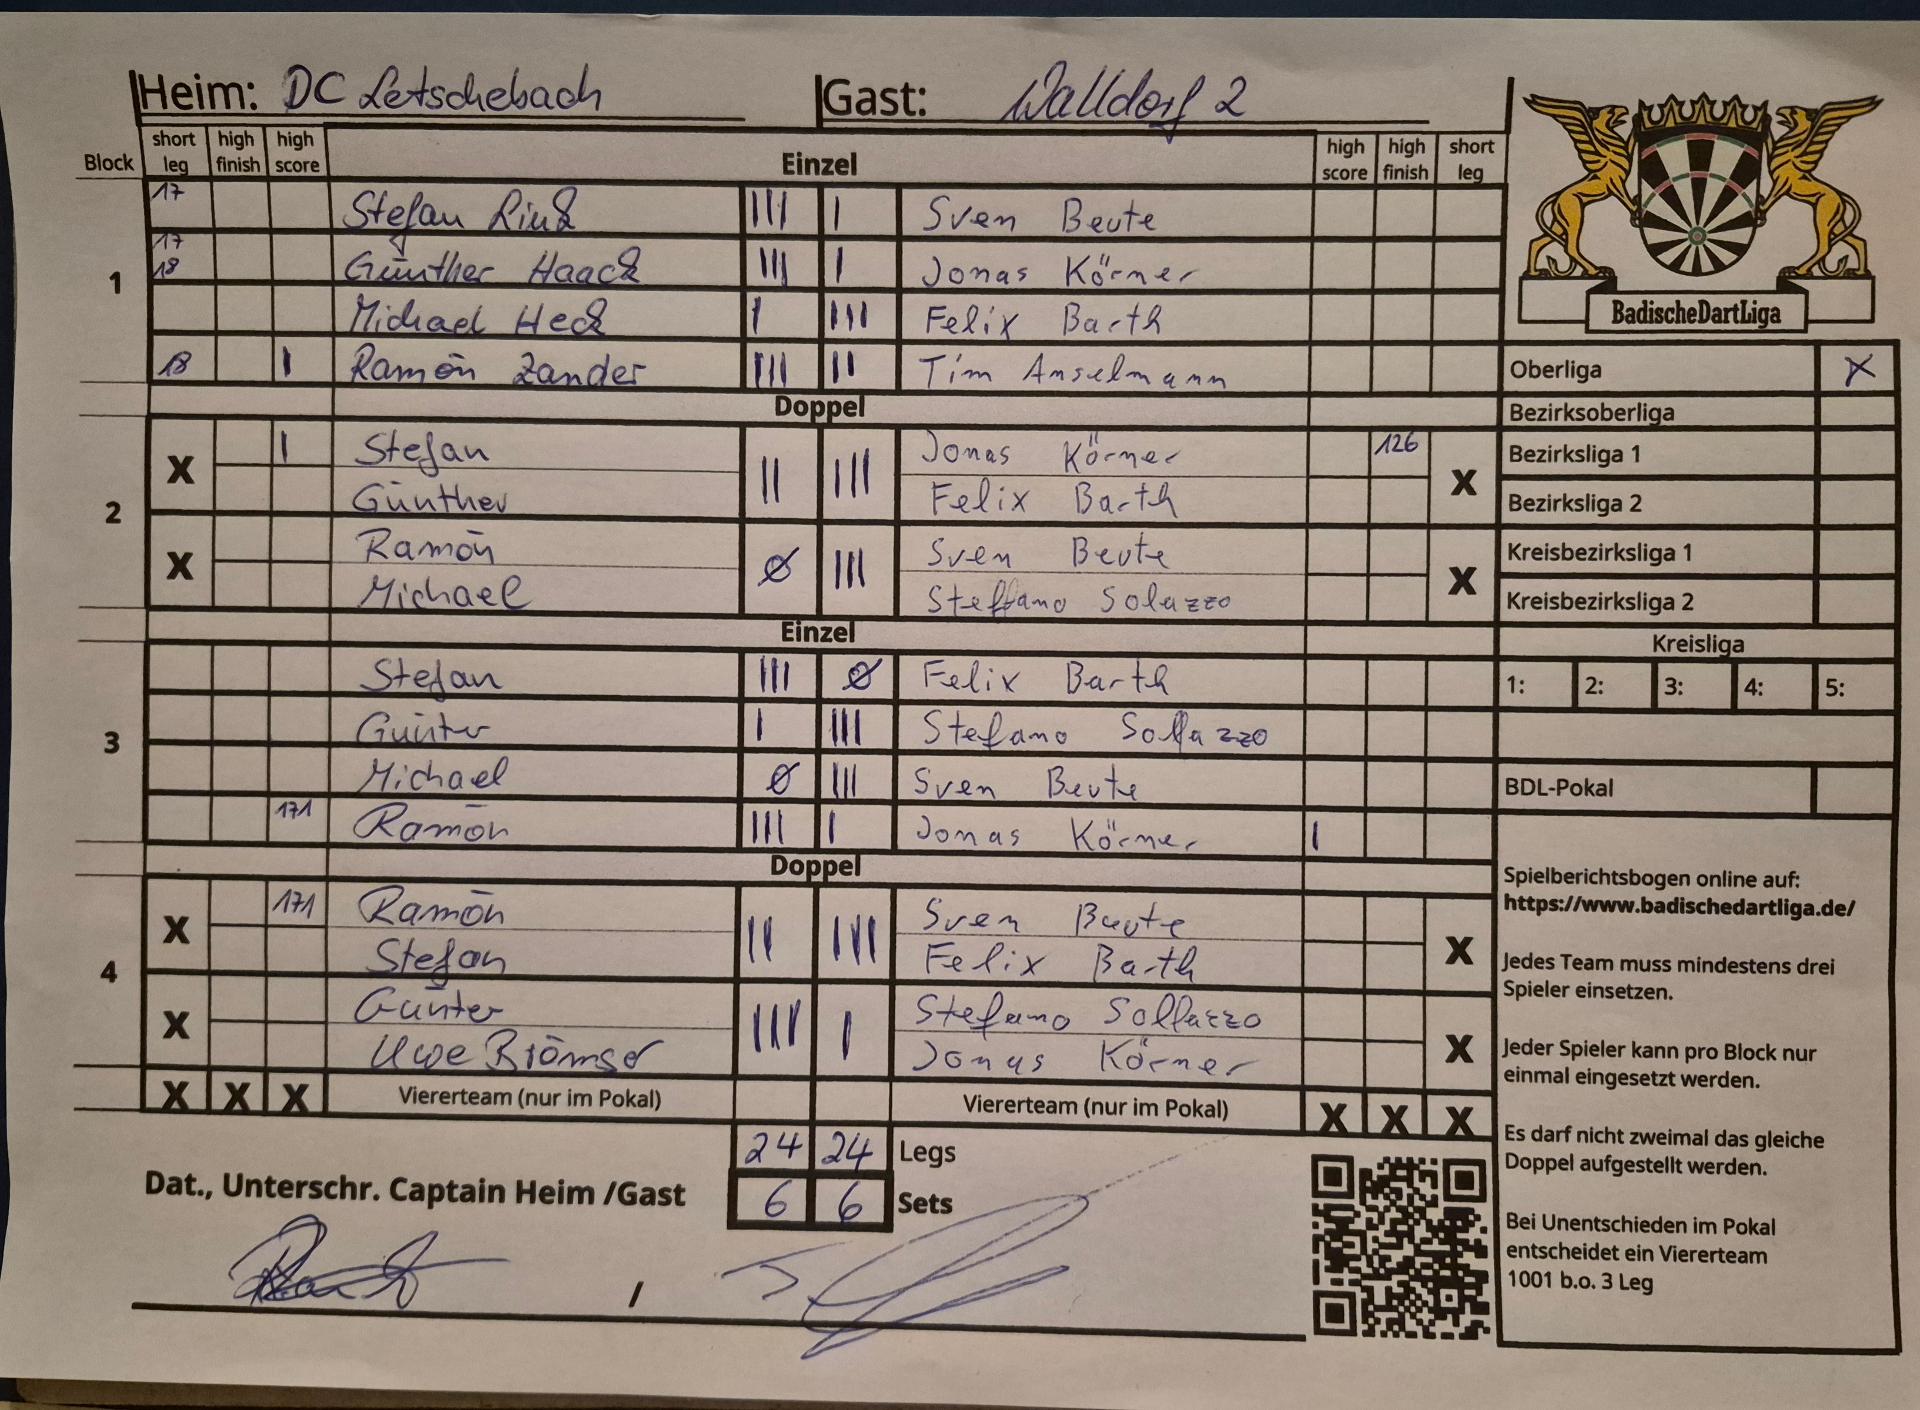 Heim: DC Letschebach Gast: Walldorf 2
Block short leg high finish high score Einzel high score high finish short leg
1
17 Stefan Link III I Sven Beute
17 18 Günther Haack III I Jonas Körner
Michael Heck I III Felix Barth
18 I Ramón Zander III II Tim Anselmann
Doppel
2
X I Stefan II III Jonas Körner 126 X
Günther Felix Barth
X Ramón Ø III Sven Beute X
Michael Steffano Solazzo
Einzel
3
Stefan III Ø Felix Barth
Günter I III Stefano Sollazzo
Michael Ø III Sven Beute
171 Ramón III I Jonas Körner I
Doppel
4
X 171 Ramón II III Sven Beute X
Stefan Felix Barth
X Günter III I Stefano Sollazzo X
Uwe Brömser Jonas Körner
X X X Viererteam (nur im Pokal) Viererteam (nur im Pokal) X X X
24 24 Legs
Dat., Unterschr. Captain Heim /Gast 6 6 Sets
/
BadischeDartLiga
Oberliga X
Bezirksoberliga
Bezirksliga 1
Bezirksliga 2
Kreisbezirksliga 1
Kreisbezirksliga 2
Kreisliga
1: 2: 3: 4: 5:
BDL-Pokal
Spielberichtsbogen online auf:
https://www.badischedartliga.de/
Jedes Team muss mindestens drei
Spieler einsetzen.
Jeder Spieler kann pro Block nur
einmal eingesetzt werden.
Es darf nicht zweimal das gleiche
Doppel aufgestellt werden.
Bei Unentschieden im Pokal
entscheidet ein Viererteam
1001 b.o. 3 Leg